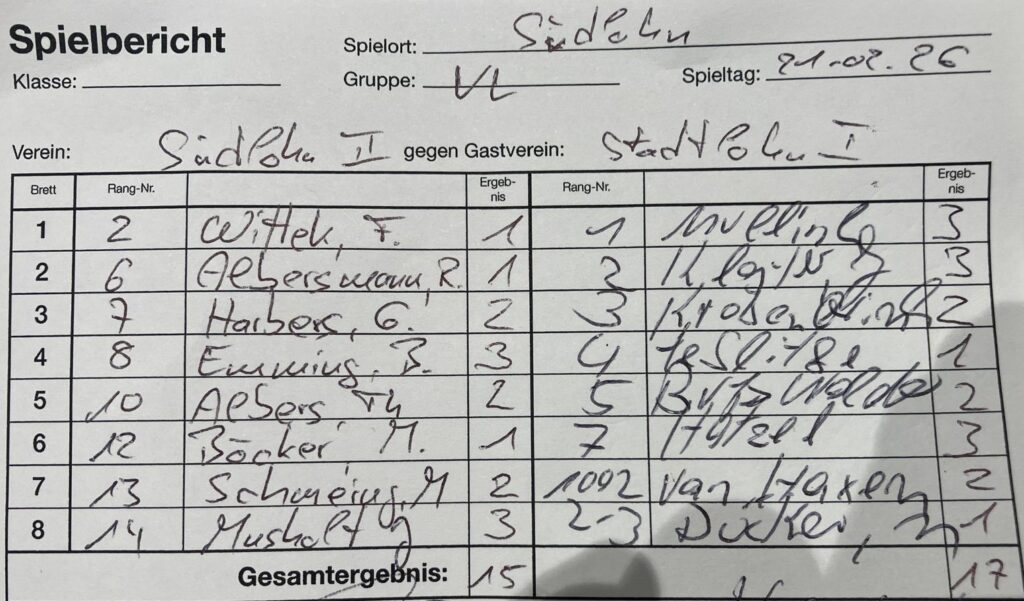 Spielbericht
Spielort: Südlohn
Klasse:
Gruppe: VL
Spieltag: 21.02.26
Verein: Südlohn II gegen Gastverein: Stadtlohn I
Brett Rang-Nr. Ergeb-nis Rang-Nr. Ergeb-nis
1 2 Wittek, F. 1 1 3
2 6 Albersmann, R. 1 2 3
3 7 Harbers, G. 2 3 2
4 8 Emming, B. 3 4 1
5 10 Albers, Th 2 5 2
6 12 Böcker, M. 1 7 3
7 13 Schmeing, M 2 1002 van Haxen 2
8 14 Musholt 3 2-3 Dücker, 1
Gesamtergebnis: 15 17